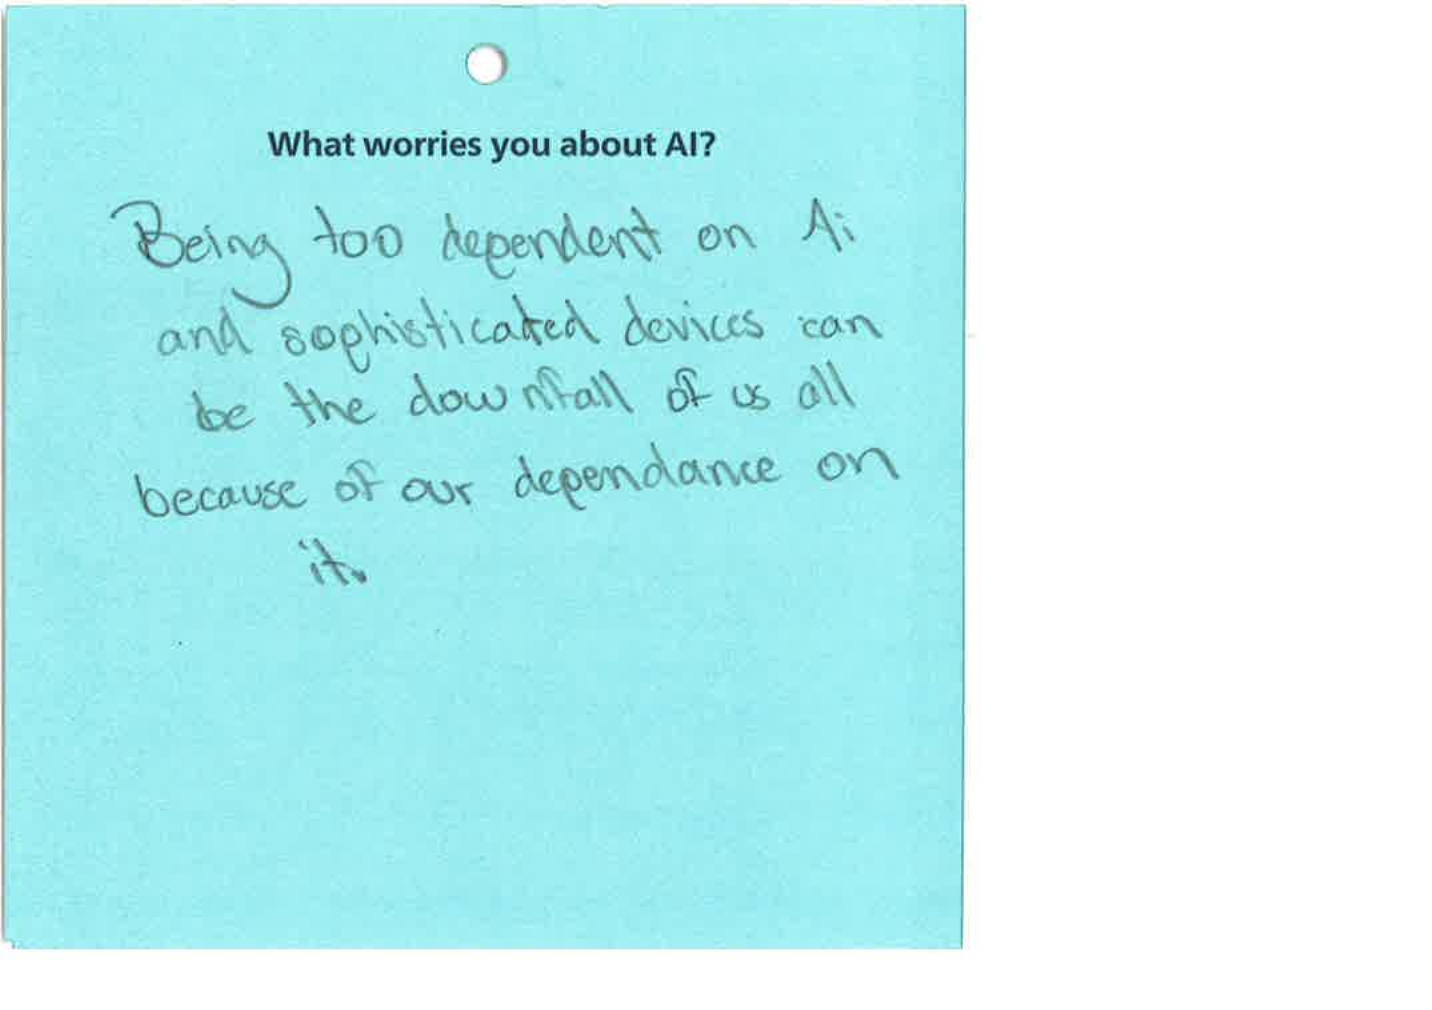 What worries you about AI?
Being too dependent on Ai
and sophisticated devices can
be the downfall of us all
because of our dependance on
it.